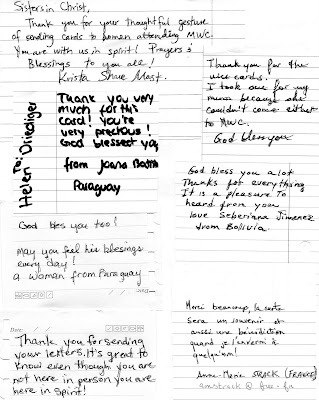 Sisters in Christ,
Thank you for your thoughtful gesture
of sending cards to women attending MWC.
You are with us in spirit! Prayers &
Blessings to you all!
Krista Shue
To: Helen Driediger
Thank you very
much for this
card! you're
very precious!
God blesset you
from Joana
Paraguay
God bles you too!
may you feel his blesings
every day!
a woman from Paraguay
Date:
Thank you for sending
your letters. It's great to
know even though you are
not here in person you are
here in spirit!
Thank you for the
nice cards.
I took one for my
mom because she
couldn't come either
to MWC.
God bless you
God bless you alot
Thanks for everything
It is a pleasure to
heard from you
love Seberiana Jimenez
from Bolivia.
Merci beaucoup, la carte
sera un souvenir et
aussi une bénédiction
quand je l'enverrai à
quelqu'un!
Anne-Marie (FRANCE)